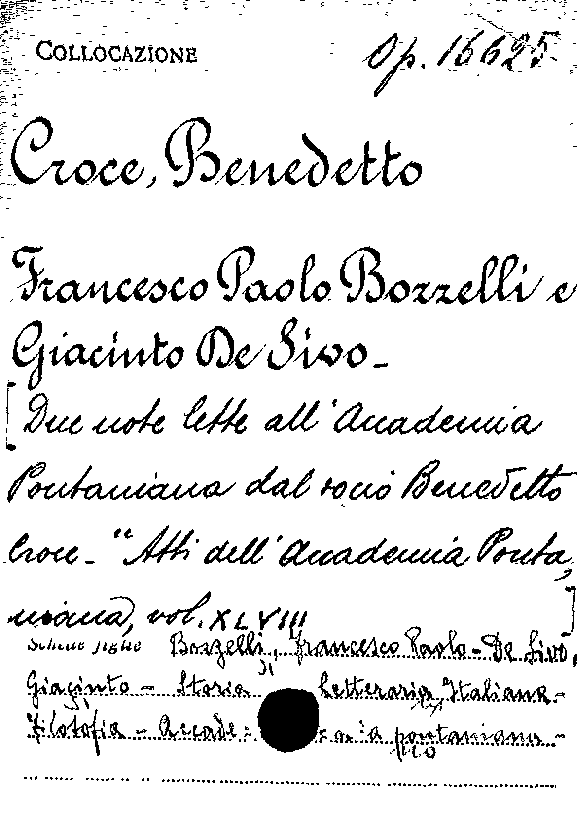 COLLOCAZIONE Op. 16625
Croce, Benedetto
Francesco Paolo Bozzelli e
Giacinto De Sivo -
[ Due note lette all'Accademia
Pontaniana dal socio Benedetto
Croce - "Atti dell'Accademia Ponta,
niana, vol. XLVIII ]
Bozzelli, Francesco Paolo - De Sivo,
Giacinto - Storia Letteraria Italiana -
Filosofia - Accademia pontaniana -